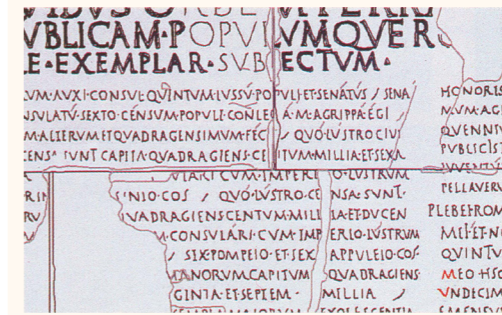 VBLICAM·POPVL VMQVER
E·EXEMPLAR·SVB ECTVM·
VM·AVXI·CONSVL·QVINTVM·IVSSV·POPVLI·ET·SENATVS / SENA
NSVLATV·SEXTO·CENSVM·POPVLI·CONLEGA·M·AGRIPPA·EGI /
M·ALTERVM·ET·QVADRAGENSIMVM·FEC / QVO·LVSTRO·CIVI
CENSA IVNT CAPITA·QVADRAGIENS·CE ITVM·MILLIA·ET·SEXA
VLARI CVM·IMPER O·LVSTRVM
NIO·COS / QVO·LVSTRO·CE NSA·SVNT·
VADRAGIENS·CENTVM·MILL IA·ET·DVCEN
CONSVLARI·CVM·IMP ERIO·LVSTRVM
SEX·POMPEIO·ET·SEX APPVLEIO·COS·
MANORVM·CAPITVM QVADRAGIENS·
GINTA·ET·SEPTEM· MILLIA /
HONORIS
M·VM·AG
QVENNI
PVBLIC
IVVENTV
PELLAVER
PLEBEI·ROM
MEI·ET·N
QVINTV
MEO·HSC
VNDECIM